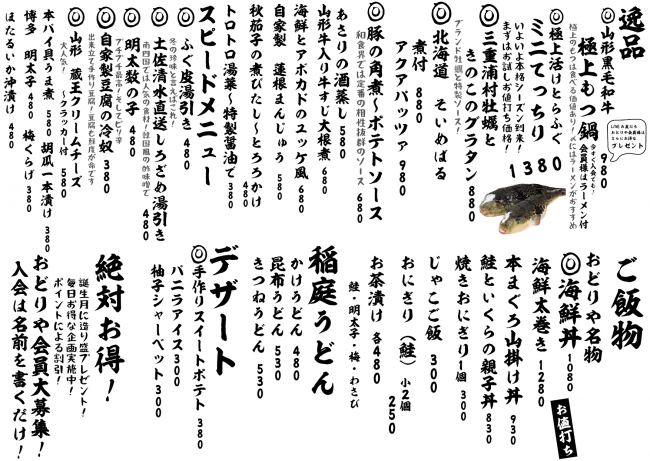 逸品
◎山形黒毛和牛
極上もつ鍋 980
今すぐ入会でも！
会員様はラーメン付
極上のもつは食べる価値あり！〆にはラーメンがおすすめ
LINEお友だち
おどりや会員様は
さらにお得な
プレゼント
◎極上活けとらふぐ
ミニてっちり 1380
いよいよ本格シーズン到来！
まずはお試しお値打ち価格！
◎三重浦村牡蠣と
きのこのグラタン 880
ブランド牡蠣と特製ソース！
◎北海道 そいめばる
煮付 880
アクアパッツァ 980
◎豚の角煮〜ポテトソース
和食界では定番の相性抜群のソース 680
あさりの酒蒸し 580
山形牛入り牛すじ大根煮 680
海鮮とアボカドのユッケ風 680
自家製 蓮根まんじゅう 580
秋茄子の煮びたし〜とろろかけ 480
トロトロ湯葉〜特製醤油で 380
スピードメニュー
◎ふぐ皮湯引き 480
冬の珍味と言えばこれ！
◎土佐清水直送しろざめ湯引き 480
南四国では人気の食材！韓国風の酢味噌で
◎明太数の子 480
プチプチ最高！そしてピリ辛
◎自家製豆腐の冷奴 380
出来立て手作り豆腐！豆腐も鮮度が命です
◎山形 蔵王クリームチーズ
大人気！ 〜クラッカー付 580
本バイ貝うま煮 580 胡瓜一本漬け 380
博多 明太子 480 梅くらげ 380
ほたるいか沖漬け 480
ご飯物
おどりや名物
◎海鮮丼 1080
お値打ち
海鮮太巻き 1280
本まぐろ山掛け丼 930
鮭といくらの親子丼 830
焼きおにぎり1個 300
じゃこご飯 300
おにぎり（鮭） 小2個 250
お茶漬け 各480
鮭・明太子・梅・わさび
稲庭うどん
かけうどん 480
昆布うどん 530
きつねうどん 530
デザート
◎手作りスイートポテト 380
バニラアイス 300
柚子シャーベット 300
絶対お得！
誕生月に造り盛プレゼント！
毎日お得な企画実施中！
ポイントによる割引！
おどりや会員大募集！
入会は名前を書くだけ！